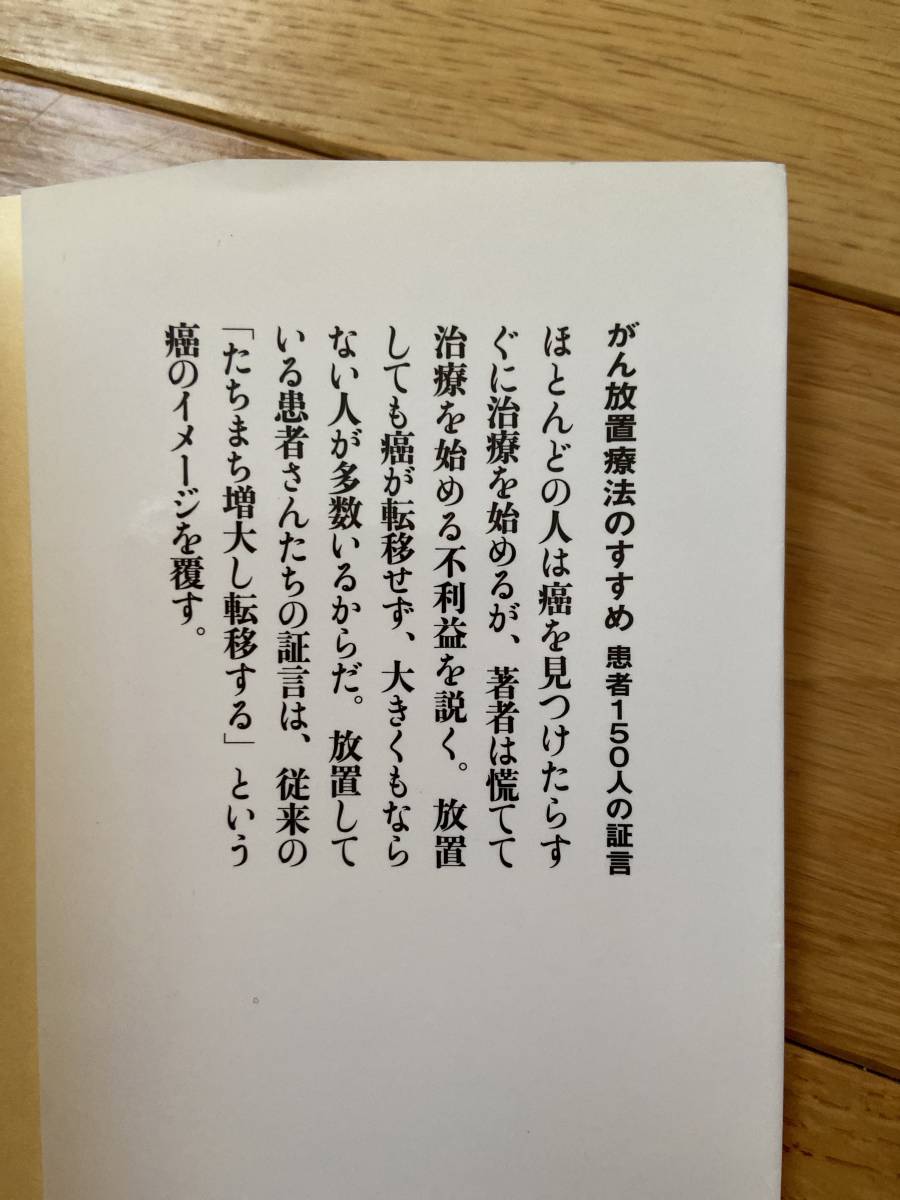 がん放置療法のすすめ 患者150人の証言
ほとんどの人は癌を見つけたらす
ぐに治療を始めるが、著者は慌てて
治療を始める不利益を説く。放置
しても癌が転移せず、大きくもなら
ない人が多数いるからだ。放置して
いる患者さんたちの証言は、従来の
「たちまち増大し転移する」という
癌のイメージを覆す。